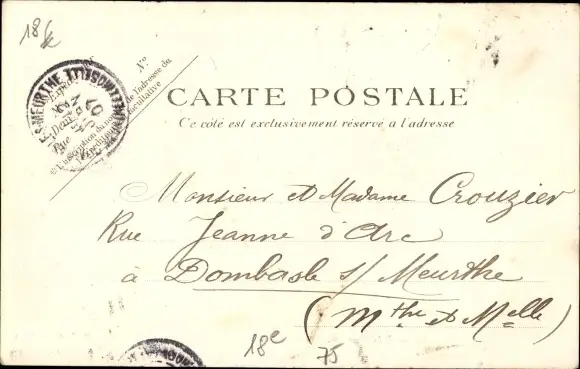 18e
Nº
CARTE POSTALE
Ce côté est exclusivement réservé a l'adresse
Monsieur et Madame Crouzier
Rue Jeanne d'Arc
à Dombasle s/ Meurthe
(Mthe et Melle)
18e
75